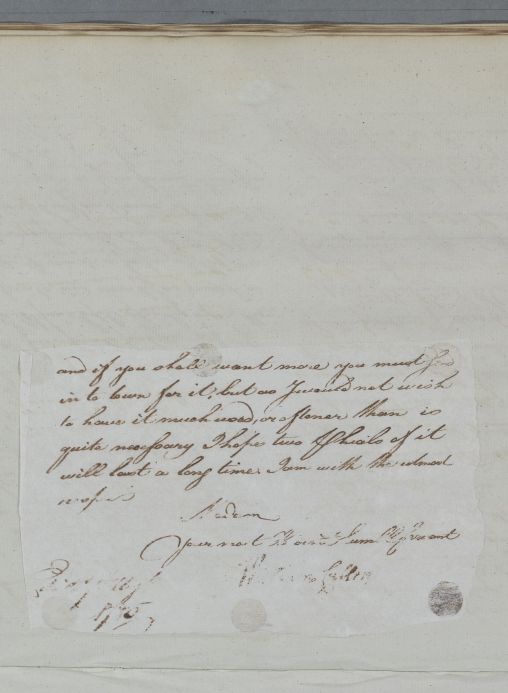 and if you shall want more you must
in to town for it; but as I would not wish
to have it much used, or oftener than is
quite necessary I hope two Phials of it
will last a long time. I am with the utmost
Madam
Your most Servant
William Cullen